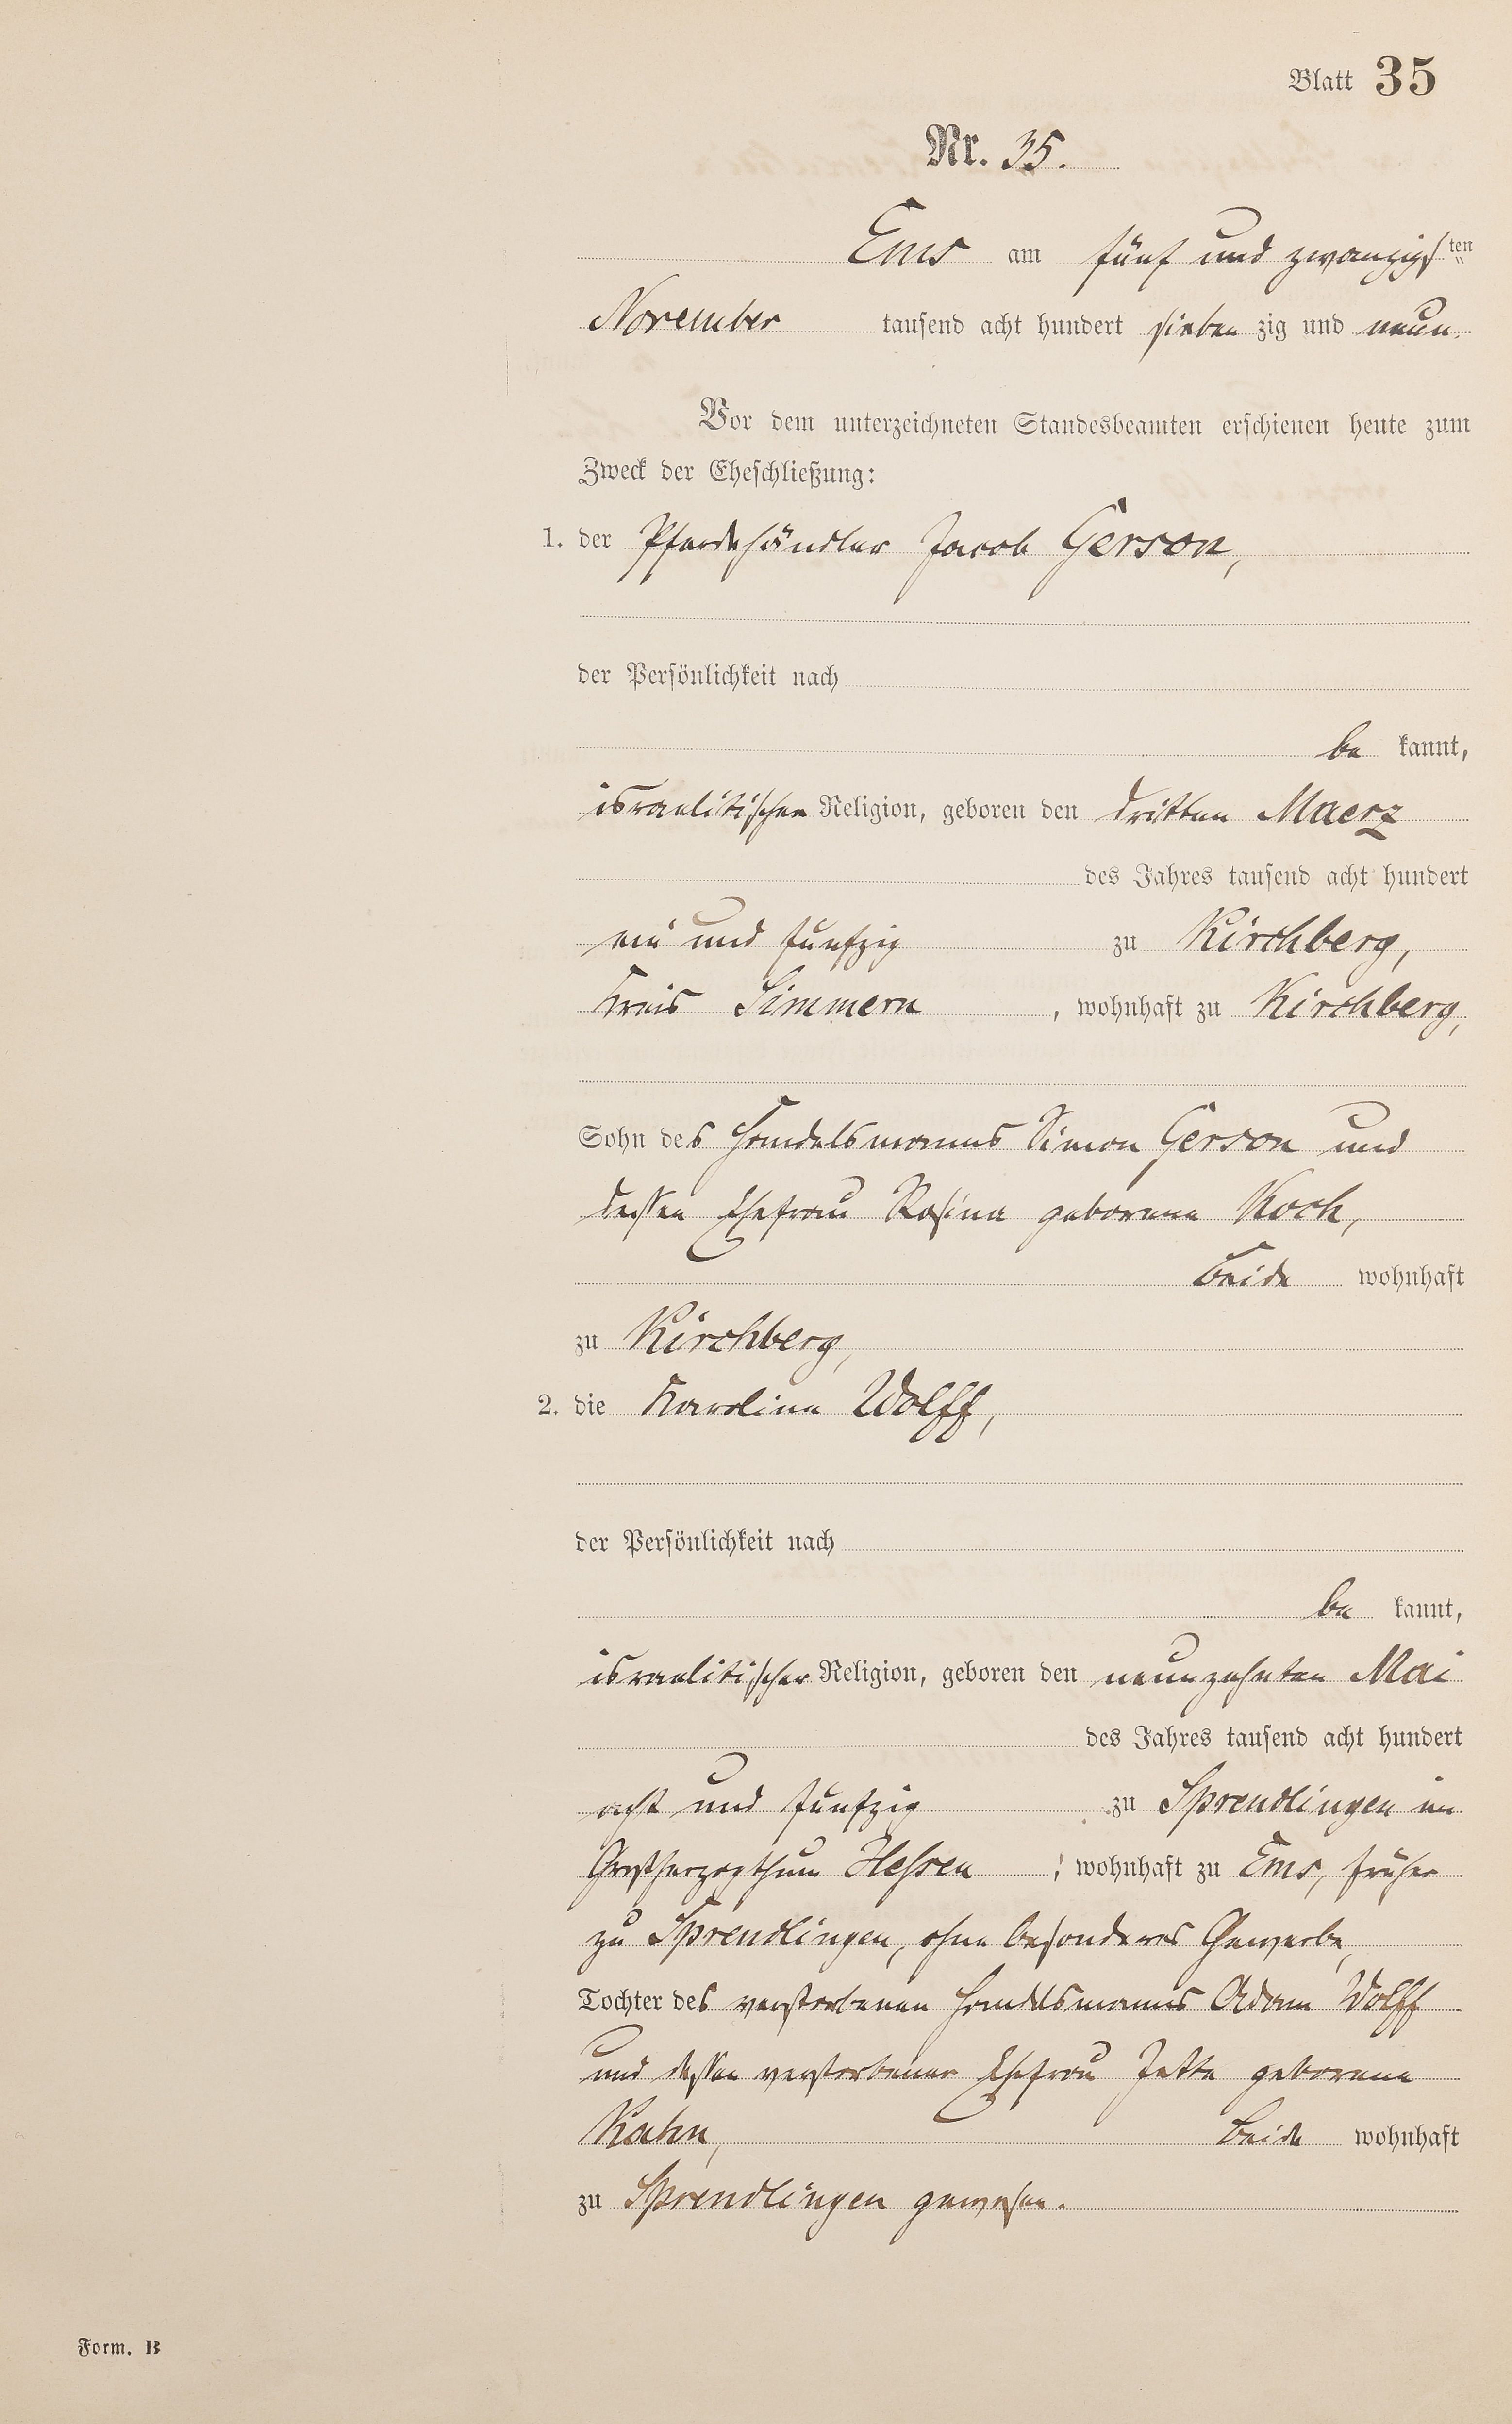 Blatt 35
Nr. 35.
Ems am fünf und zwanzigsten
November tausend acht hundert siebenzig und neun.
Vor dem unterzeichneten Standesbeamten erschienen heute zum
Zweck der Eheschließung:
1. der Pferdehändler Jacob Gerson,
der Persönlichkeit nach
be kannt,
israelitischer Religion, geboren den dritten Maerz
des Jahres tausend acht hundert
ein und funfzig zu Kirchberg,
Kreis Simmern, wohnhaft zu Kirchberg,
Sohn des Handelsmanns Simon Gerson und
dessen Ehefrau Rosina geborene Koch,
beide wohnhaft
zu Kirchberg,
2. die Karolina Wolff,
der Persönlichkeit nach
be kannt,
israelitischer Religion, geboren den neunzehnten Mai
des Jahres tausend acht hundert
acht und funfzig zu Sprendlingen im
Großherzogthum Hessen, wohnhaft zu Ems, früher
zu Sprendlingen, ohne besonderes Gewerbe,
Tochter des verstorbenen Handelsmanns Adam Wolff
und dessen verstorbener Ehefrau Jette geborene
Kahn, beide wohnhaft
zu Sprendlingen gewesen.
Form. B